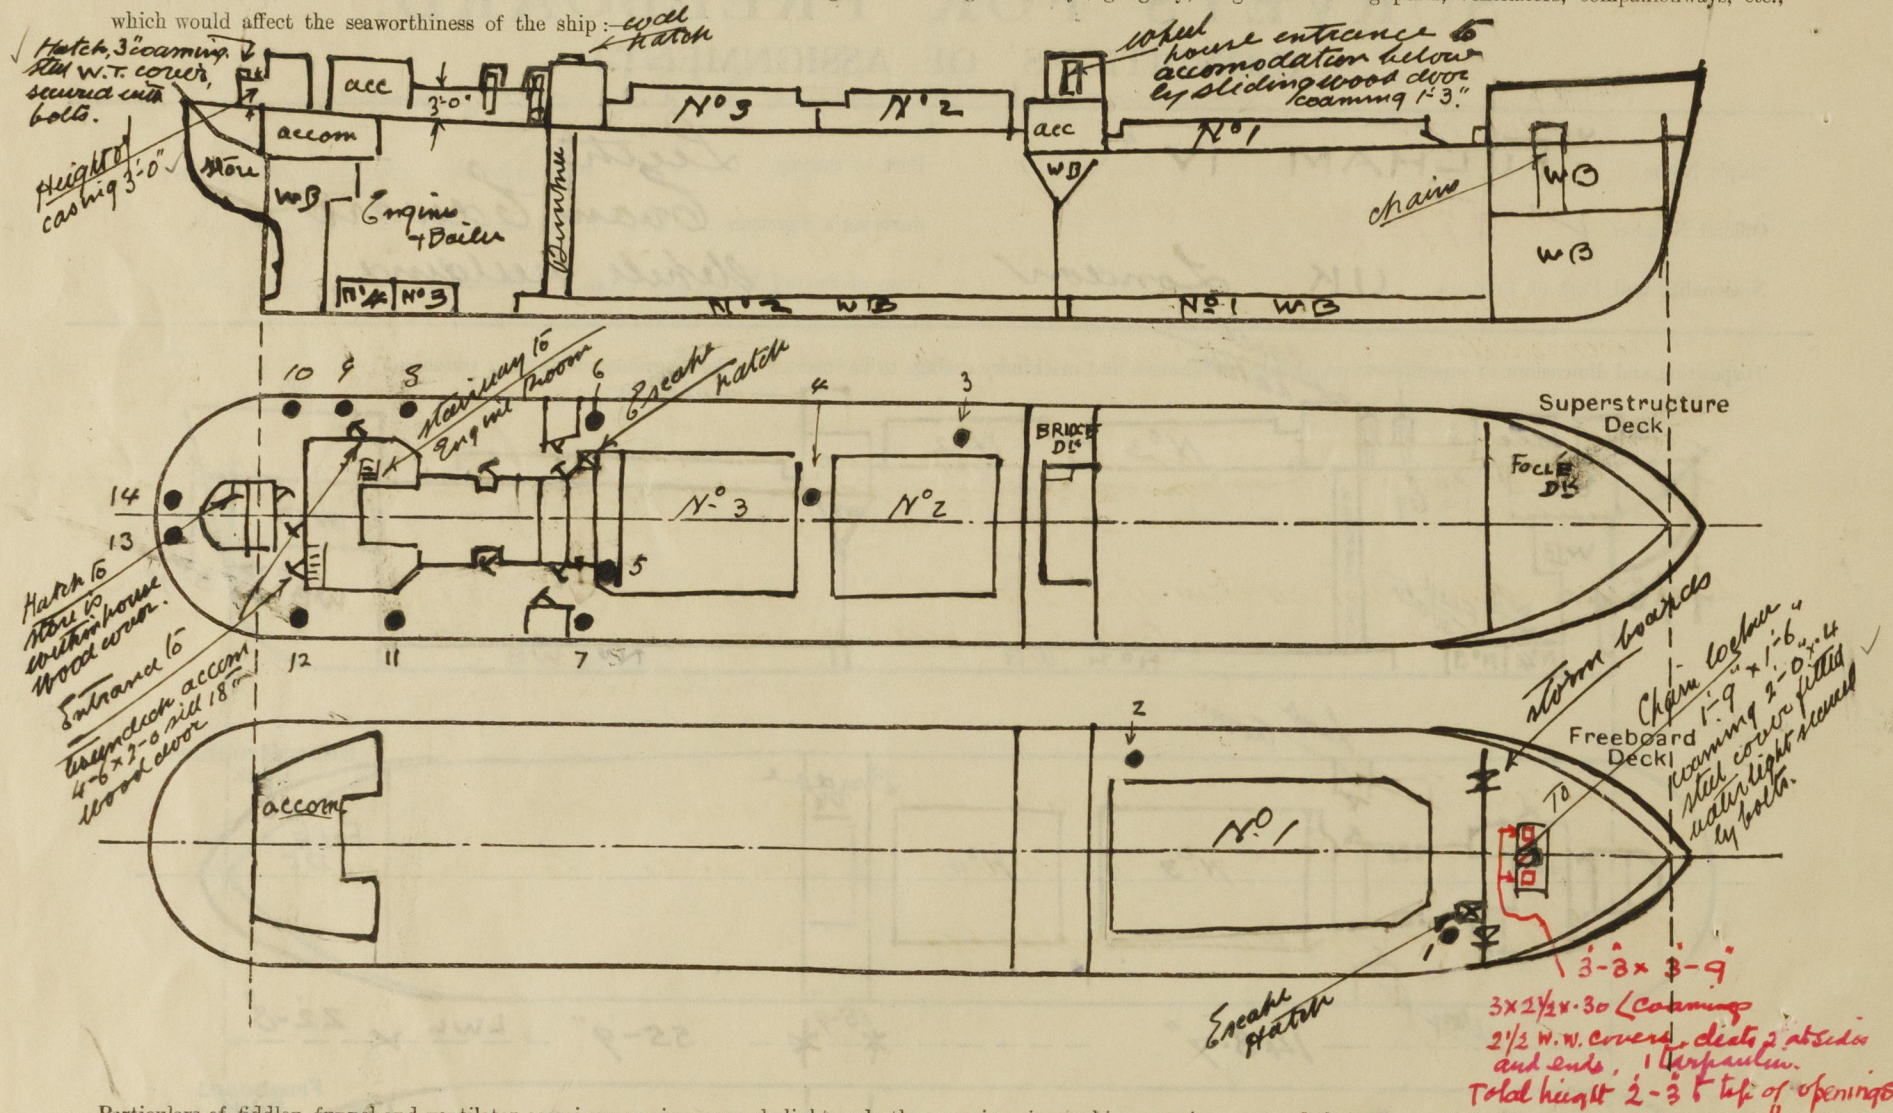 which would affect the seaworthiness of the ship :—
coal
hatch
Hatch, 3" coaming
steel W.T. cover,
secured with
bolts.
Height of
casing 3'-0"
acc
3'-0"
No 3
No 2
wheel
house entrance to
accomodation below
by sliding wood door
coaming 1'-3".
accom
acc
No 1
store
WB
Engine
+ Boiler
WB
chains
WB
WB
No 4
No 3
No 2 WB
No 1 WB
10
9
8
stairway to
Engine Room
6
Escape
hatch
4
3
BRIDGE
DK
Superstructure
Deck
FOCLE
DK
14
13
No 3
No 2
5
12
11
7
Hatch to
store is
within house
wood cover.
Entrance to
tweendeck accom
4-6 x 2-0 sill 18"
wood door
storm boards
To
Chain locker
1'-9" x 1'-6"
coaming 2'-0" x .4
steel cover fitted
watertight secured
by bolts.
2
Freeboard
Deck
accom
No 1
1
Escape
Hatch
3-3 x 3-9"
3 x 2 1/2 x .30 L coamings
2 1/2 W.W. covers, cleats 2 at sides
and ends, 1 tarpaulin.
Total height 2-3 to top of openings